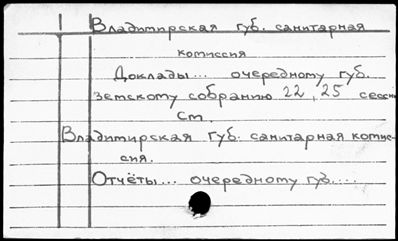 Владимирская губ. санитарная
комиссия
Доклады... очередному губ.
земскому собранию 22, 25 сессии
См.
Владимирская губ. санитарная комис-
сия.
Отчёты... очередному губ....